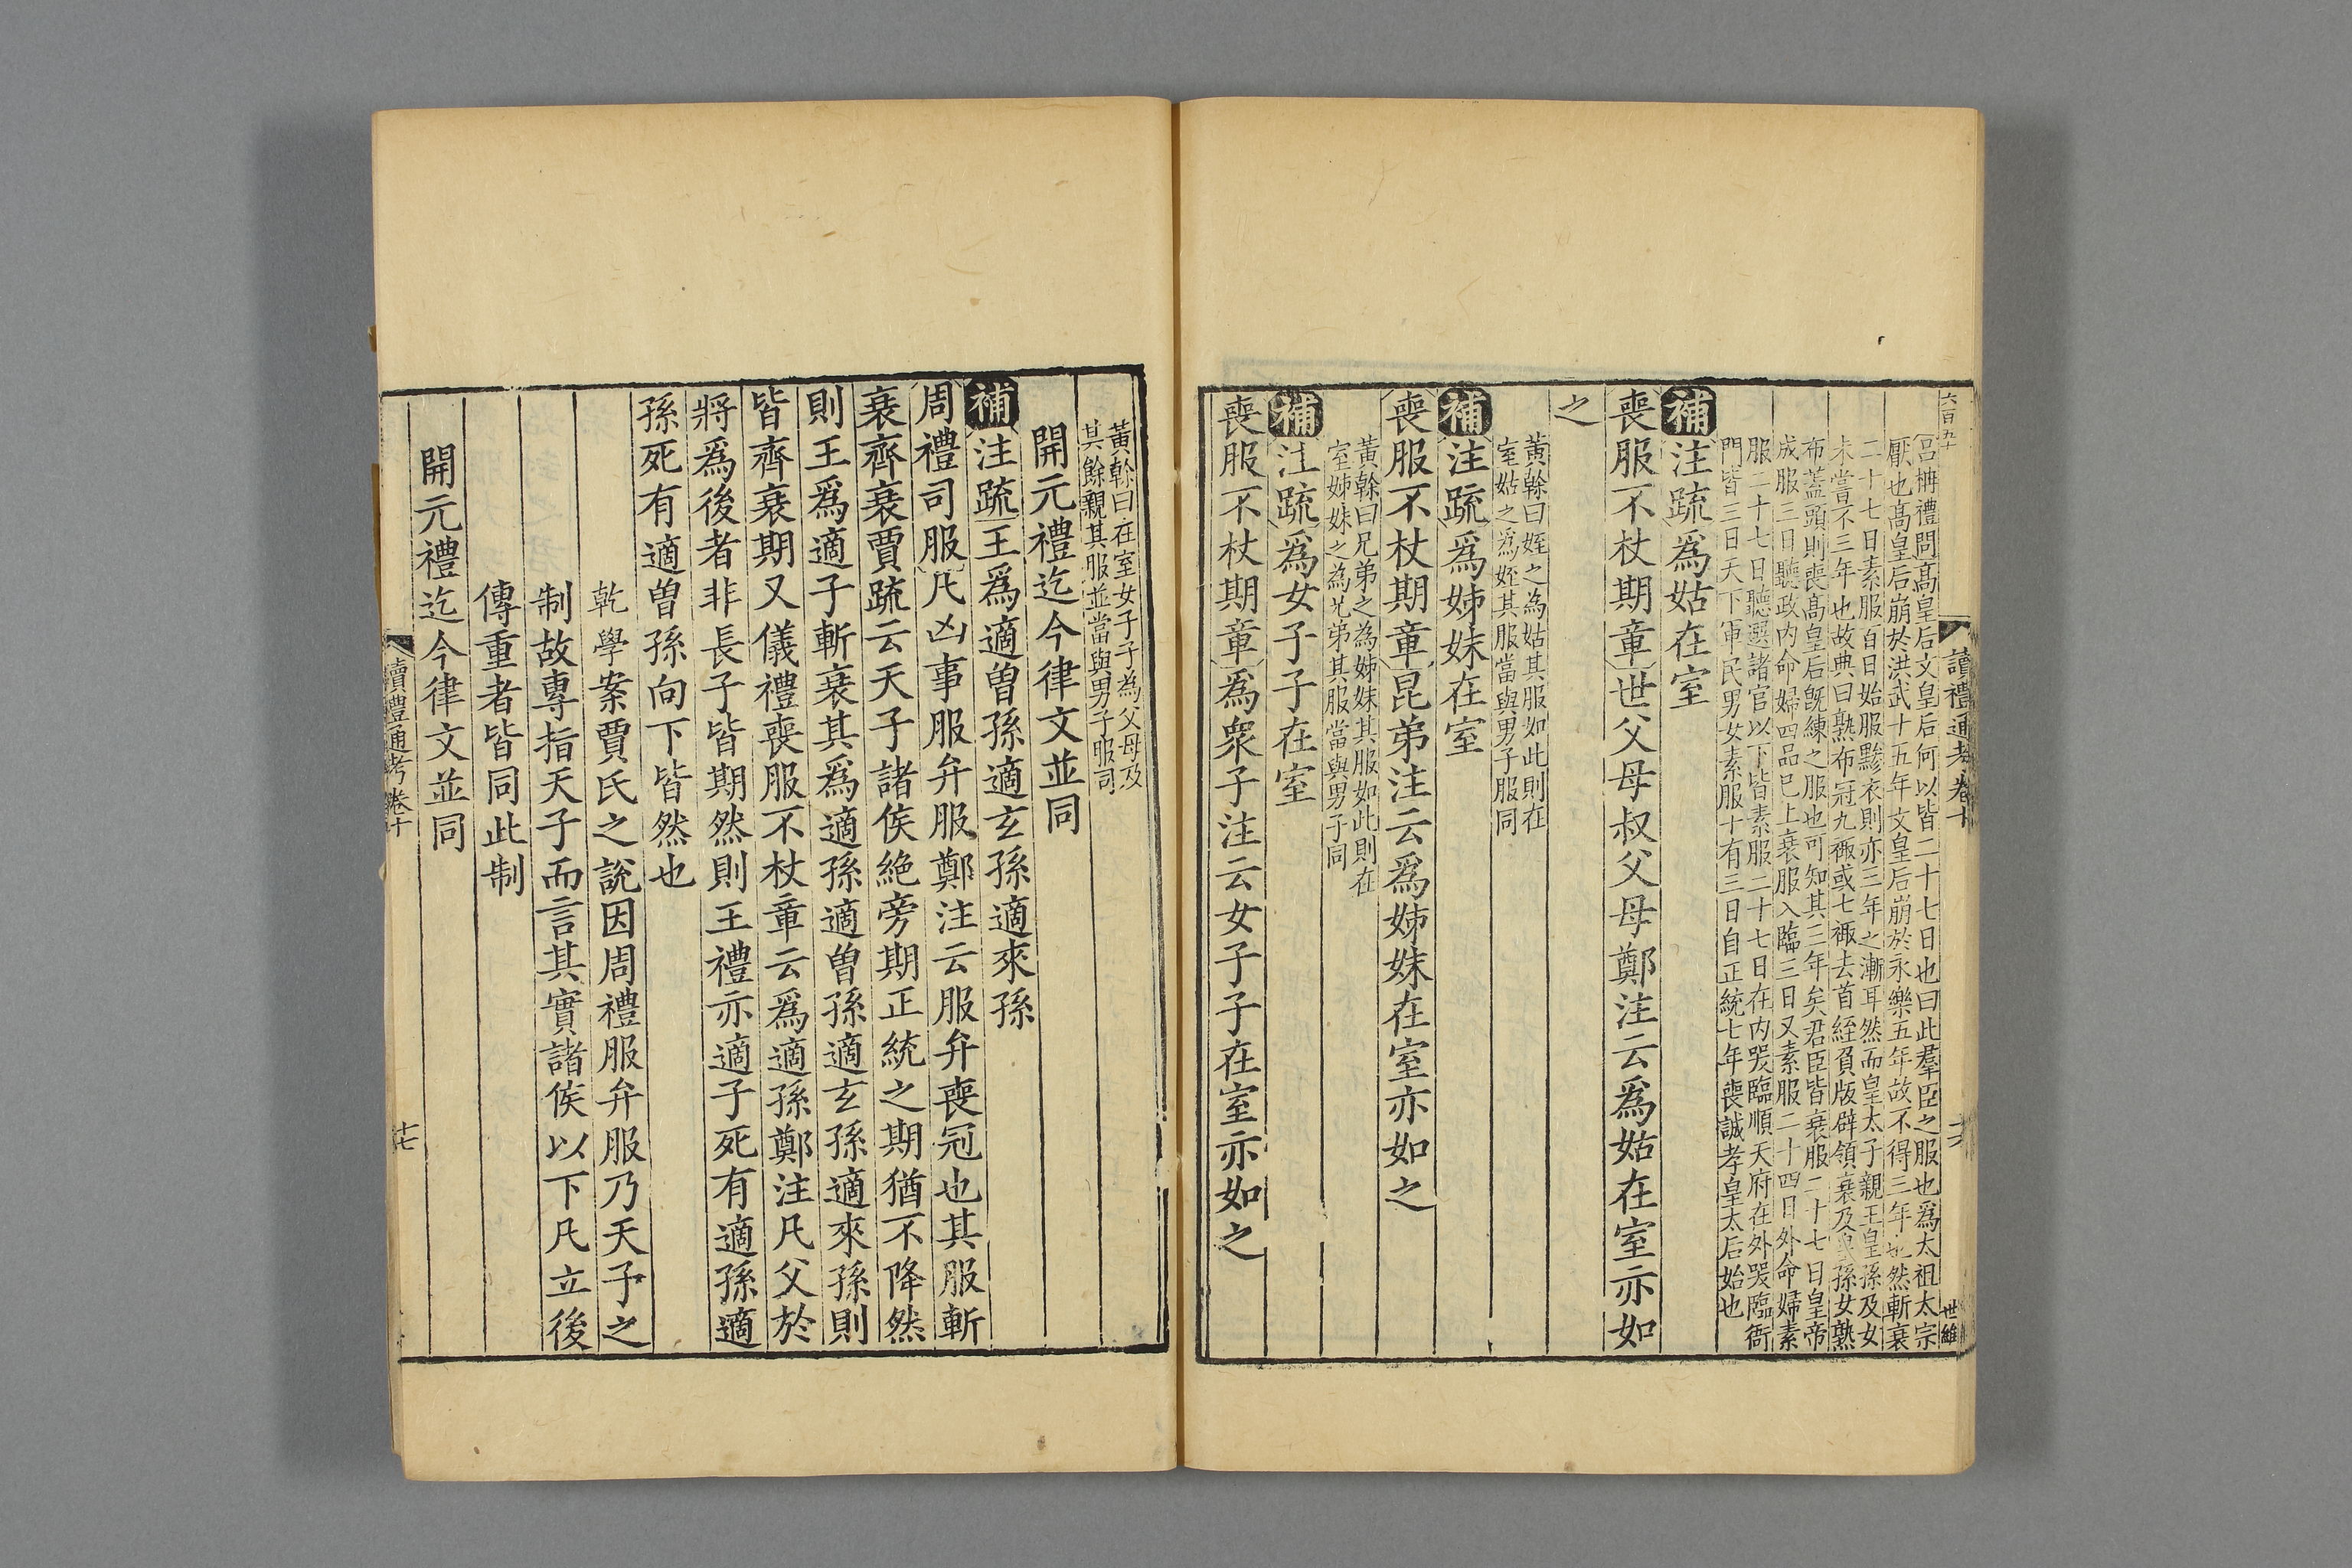 六百五十
讀禮通考卷十
十六
世維
呂柟禮問高皇后文皇后何以皆二十七日也曰此羣臣之服也爲太祖太宗
厭也高皇后崩於洪武十五年文皇后崩於永樂五年故不得三年也然斬衰
二十七日素服百日始服黲衣則亦三年之漸耳然而皇太子親王皇孫及女
未嘗不三年也故典曰熟布冠九𧞤或七𧞤去首絰負版辟領衰及皇孫女熟
布蓋頭則喪髙皇后旣練之服也可知其三年矣君臣皆衰服二十七日皇帝
成服三日聽政內命婦四品已上衰服入臨三日又素服二十四日外命婦素
服二十七日聽選諸官以下皆素服二十七日在內哭臨順天府在外哭臨衙
門皆三日天下軍民男女素服十有三日自正統七年喪誠孝皇太后始也
補注疏爲姑在室
喪服不杖期章世父母叔父母鄭注云爲姑在室亦如
之
黃榦曰姪之為姑其服如此則在
室姑之為姪其服當與男子服同
補注疏爲姊妹在室
喪服不杖期章昆弟注云爲姊妹在室亦如之
黃榦曰兄弟之為姊妹其服如此則在
室姊妹之為兄弟其服當與男子同
補注疏爲女子子在室
喪服不杖期章爲衆子注云女子子在室亦如之
黃榦曰在室女子子為父母及
其餘親其服並當與男子服同
開元禮迄今律文並同
補注疏王爲適曾孫適玄孫適來孫
周禮司服凡凶事服弁服鄭注云服弁喪冠也其服斬
衰齊衰賈疏云天子諸侯絶旁期正統之期猶不降然
則王爲適子斬衰其爲適孫適曾孫適玄孫適來孫則
皆齊衰期又儀禮喪服不杖章云爲適孫鄭注凡父於
將爲後者非長子皆期然則王禮亦適子死有適孫適
孫死有適曾孫向下皆然也
乾學案賈氏之說因周禮服弁服乃天子之
制故專指天子而言其實諸侯以下凡立後
傳重者皆同此制
開元禮迄今律文並同
讀禮通考卷十
十七